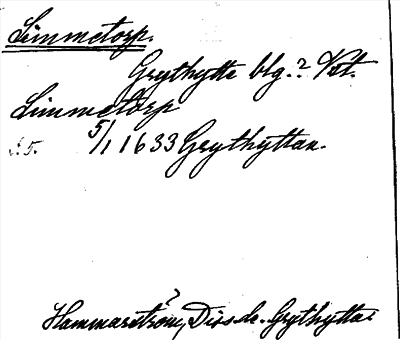 Simmetorp.
Grythytte blg.? Vst.
Simmetorp
5/1 1633 Grythyttan.
Hammarström, Diss. de Grythytta